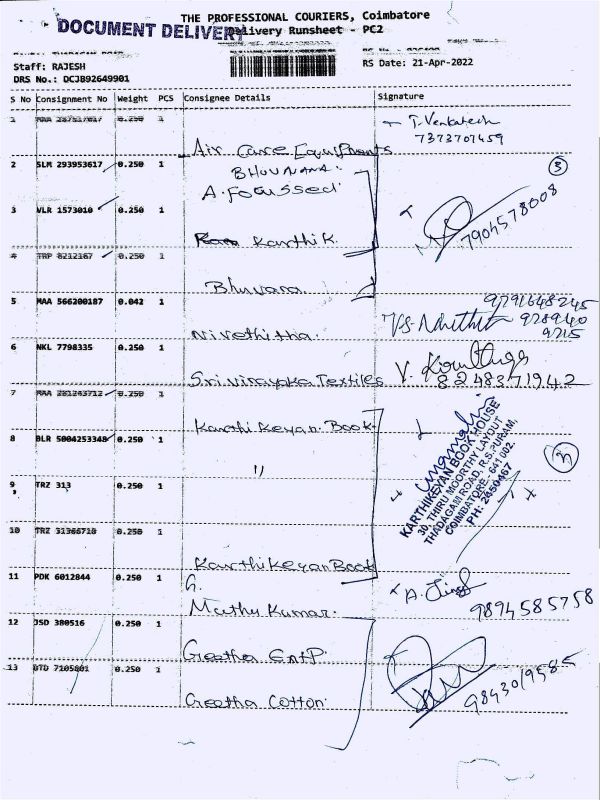 THE PROFESSIONAL COURIERS, Coimbatore
DOCUMENT DELIVERY
Delivery Runsheet - PC2
Staff: RAJESH
RS Date: 21-Apr-2022
DRS No.: DCJB92649901
S No Consignment No Weight PCS Consignee Details Signature
1 0.250 1 Air Care Equipments T. Venkatesh
7373707459
2 SLM 293953617 0.250 1 BHUVANA.
A. Focussed
3
3 VLR 1573010 0.250 1 Karthik 7904578008
4 TRP 8212167 0.250 1 Bhuvana
5 MAA 566200187 0.042 1 Nivethitha. 9791648245
978940
9715
6 NKL 7798335 0.250 1 Sri Vinayaka Textiles V.
8248371942
7 MAA 281243712 0.250 1 Karthikeyan Book
8 BLR 5004253348 0.250 1 "
KARTHIKEYAN BOOK HOUSE
30, THIRU MOORTHY LAYOUT,
THADAGAM ROAD, R.S.PURAM,
COIMBATORE - 641 002.
PH: 2450467
9 TRZ 313 0.250 1
10 TRZ 31366710 0.250 1 Karthikeyan Book
11 PDK 6012844 0.250 1 G.
Muthu Kumar. 9894585758
12 JSD 380516 0.250 1 Geetha EntP.
13 DTD 7105801 0.250 1 Geetha Cotton. 9843019585